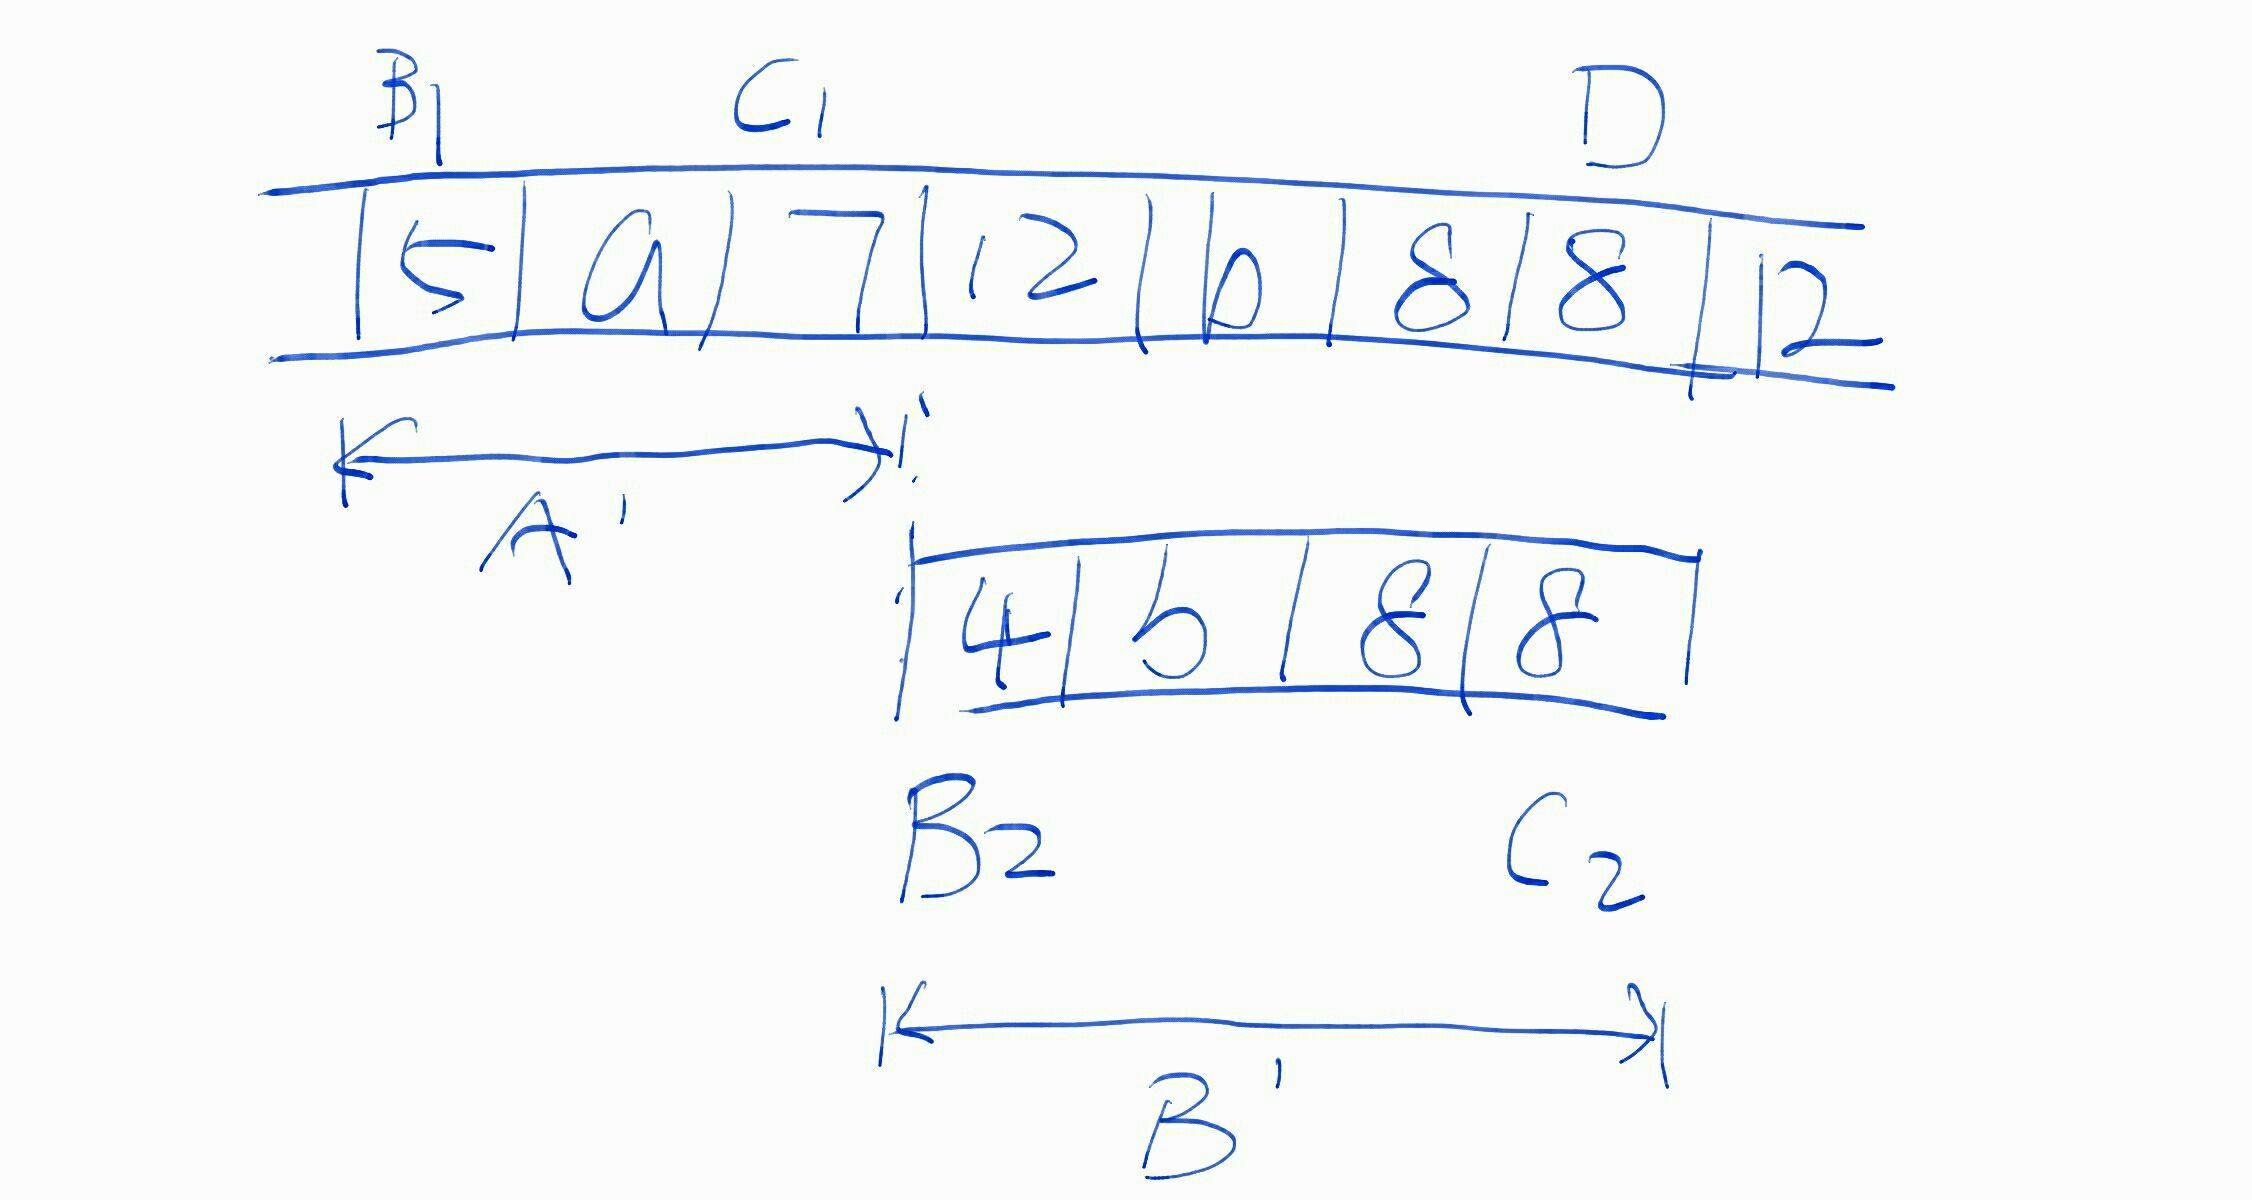 B1 C1 D
5 9 7 12 6 8 8 12
A'
4 5 8 8
B2 C2
B'